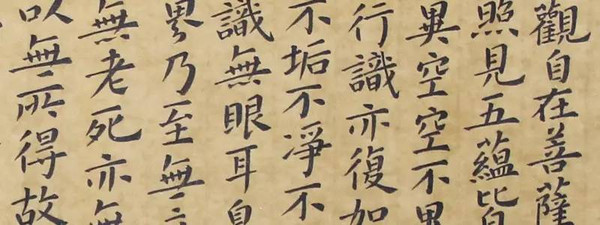 觀自在菩薩
照見五蘊皆
異空空不異
行識亦復如
不垢不淨不
識無眼耳鼻
界乃至無
無老死亦無
以無所得故